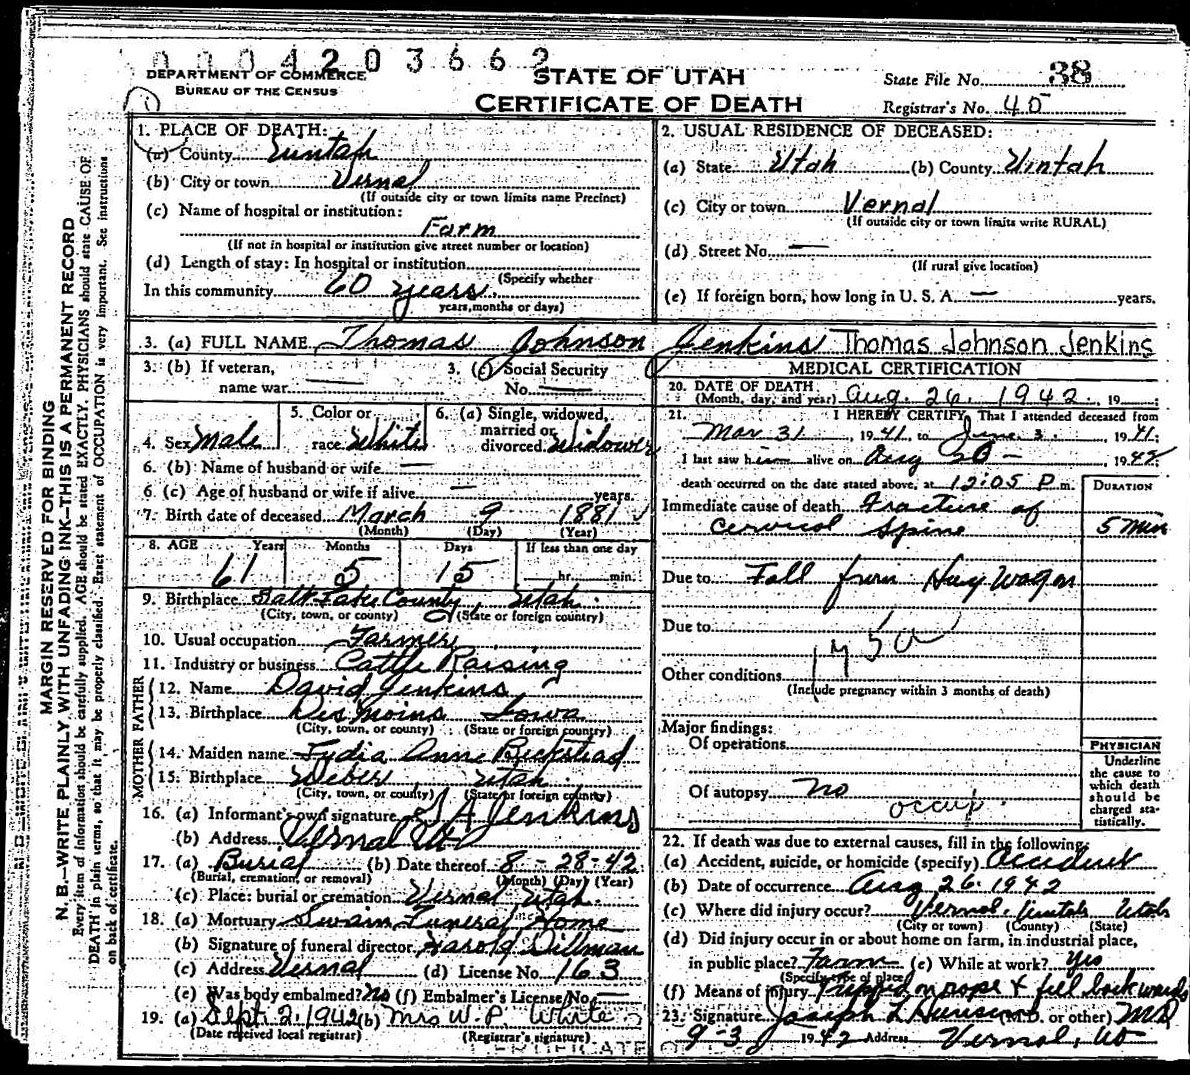 0004203662
DEPARTMENT OF COMMERCE
BUREAU OF THE CENSUS
STATE OF UTAH
CERTIFICATE OF DEATH
State File No. 38
Registrar's No. 40
1. PLACE OF DEATH:
(a) County Uintah
(b) City or town Vernal
(If outside city or town limits name Precinct)
(c) Name of hospital or institution:
Farm
(If not in hospital or institution give street number or location)
(d) Length of stay: In hospital or institution
(Specify whether
In this community 60 years
years, months or days)
2. USUAL RESIDENCE OF DECEASED:
(a) State Utah (b) County Uintah
(c) City or town Vernal
(If outside city or town limits write RURAL)
(d) Street No. —
(If rural give location)
(e) If foreign born, how long in U. S. A. — years.
3. (a) FULL NAME Thomas Johnson Jenkins Thomas Johnson Jenkins
3. (b) If veteran,
name war —
3. (c) Social Security
No. —
4. Sex Male
5. Color or
race White
6. (a) Single, widowed,
married or
divorced Widower
6. (b) Name of husband or wife —
6. (c) Age of husband or wife if alive — years.
7. Birth date of deceased March 9 1881
(Month) (Day) (Year)
8. AGE Years Months Days If less than one day
61 5 15 hr. min.
9. Birthplace Salt Lake County, Utah
(City, town, or county) (State or foreign country)
10. Usual occupation Farmer
11. Industry or business Cattle Raising
FATHER
12. Name David Jenkins
13. Birthplace Des Moins Iowa
(City, town, or county) (State or foreign country)
MOTHER
14. Maiden name Lydia Ann Beckstead
15. Birthplace Weber Utah
(City, town, or county) (State or foreign country)
16. (a) Informant's own signature A Jenkins
(b) Address Vernal Ut
17. (a) Burial (b) Date thereof 8-28-42
(Burial, cremation, or removal) (Month) (Day) (Year)
(c) Place: burial or cremation Vernal Utah
18. (a) Mortuary Swain Funeral Home
(b) Signature of funeral director Harold Dillman
(c) Address Vernal (d) License No. 163
(e) Was body embalmed? No (f) Embalmer's License No. —
19. (a) Sept. 2, 1942 (b) Mrs W. P. White
(Date received local registrar) (Registrar's signature)
MEDICAL CERTIFICATION
20. DATE OF DEATH
(Month, day, and year) Aug. 26. 1942, 19
21. I HEREBY CERTIFY, That I attended deceased from
Mar 31, 1941, to June 3, 1941;
I last saw him alive on Aug 20 - , 1942
death occurred on the date stated above, at 12:05 P.m.
DURATION
Immediate cause of death Fracture of
cervical spine 5 min
Due to Fall from Hay Wagon
Due to
195a
Other conditions
(Include pregnancy within 3 months of death)
Major findings:
Of operations
Of autopsy no
occup.
PHYSICIAN
Underline
the cause to
which death
should be
charged sta-
tistically.
22. If death was due to external causes, fill in the following
(a) Accident, suicide, or homicide (specify) Accident
(b) Date of occurrence Aug 26. 1942
(c) Where did injury occur? Vernal. Uintah Utah
(City or town) (County) (State)
(d) Did injury occur in or about home on farm, in industrial place,
in public place? Farm (e) While at work? yes
(Specify type of place)
(f) Means of injury Tripped on rope & fell backwards
23. Signature Joseph L (M.D. or other) MD
9-3 1942 Address Vernal, Ut
MARGIN RESERVED FOR BINDING
N. B.—WRITE PLAINLY WITH UNFADING INK—THIS IS A PERMANENT RECORD
Every item of information should be carefully supplied. AGE should be stated EXACTLY. PHYSICIANS should state CAUSE OF
DEATH in plain terms, so that it may be properly classified. Exact statement of OCCUPATION is very important. See instructions
on back of certificate.